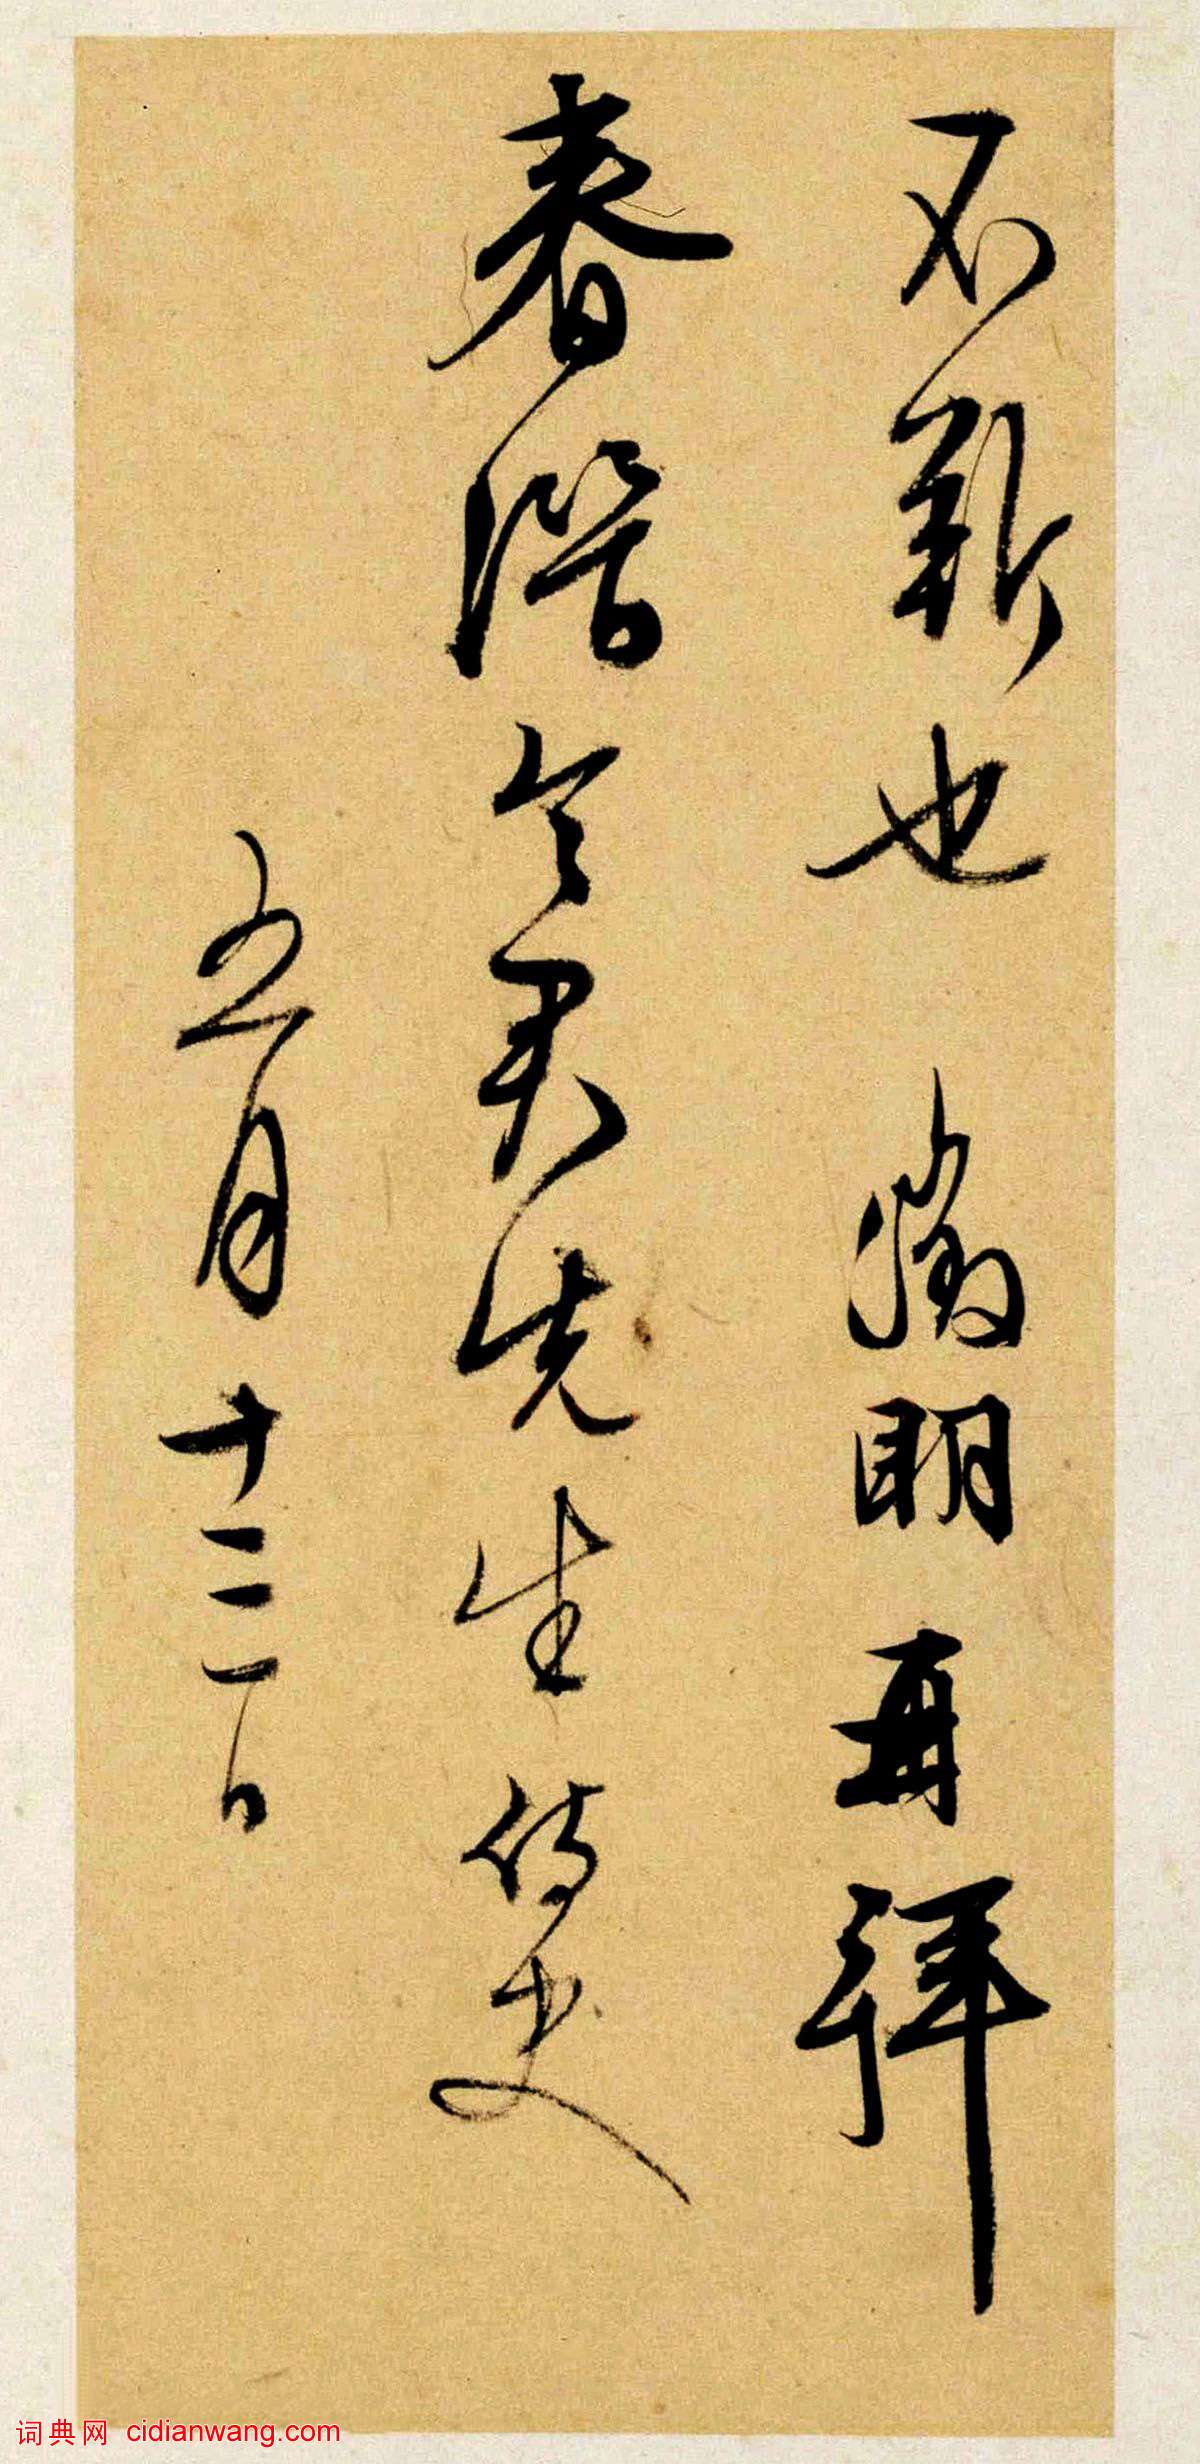 不斳也徵明再拜
春潛令君先生侍史
五月十三日
词典网 cidianwang.com